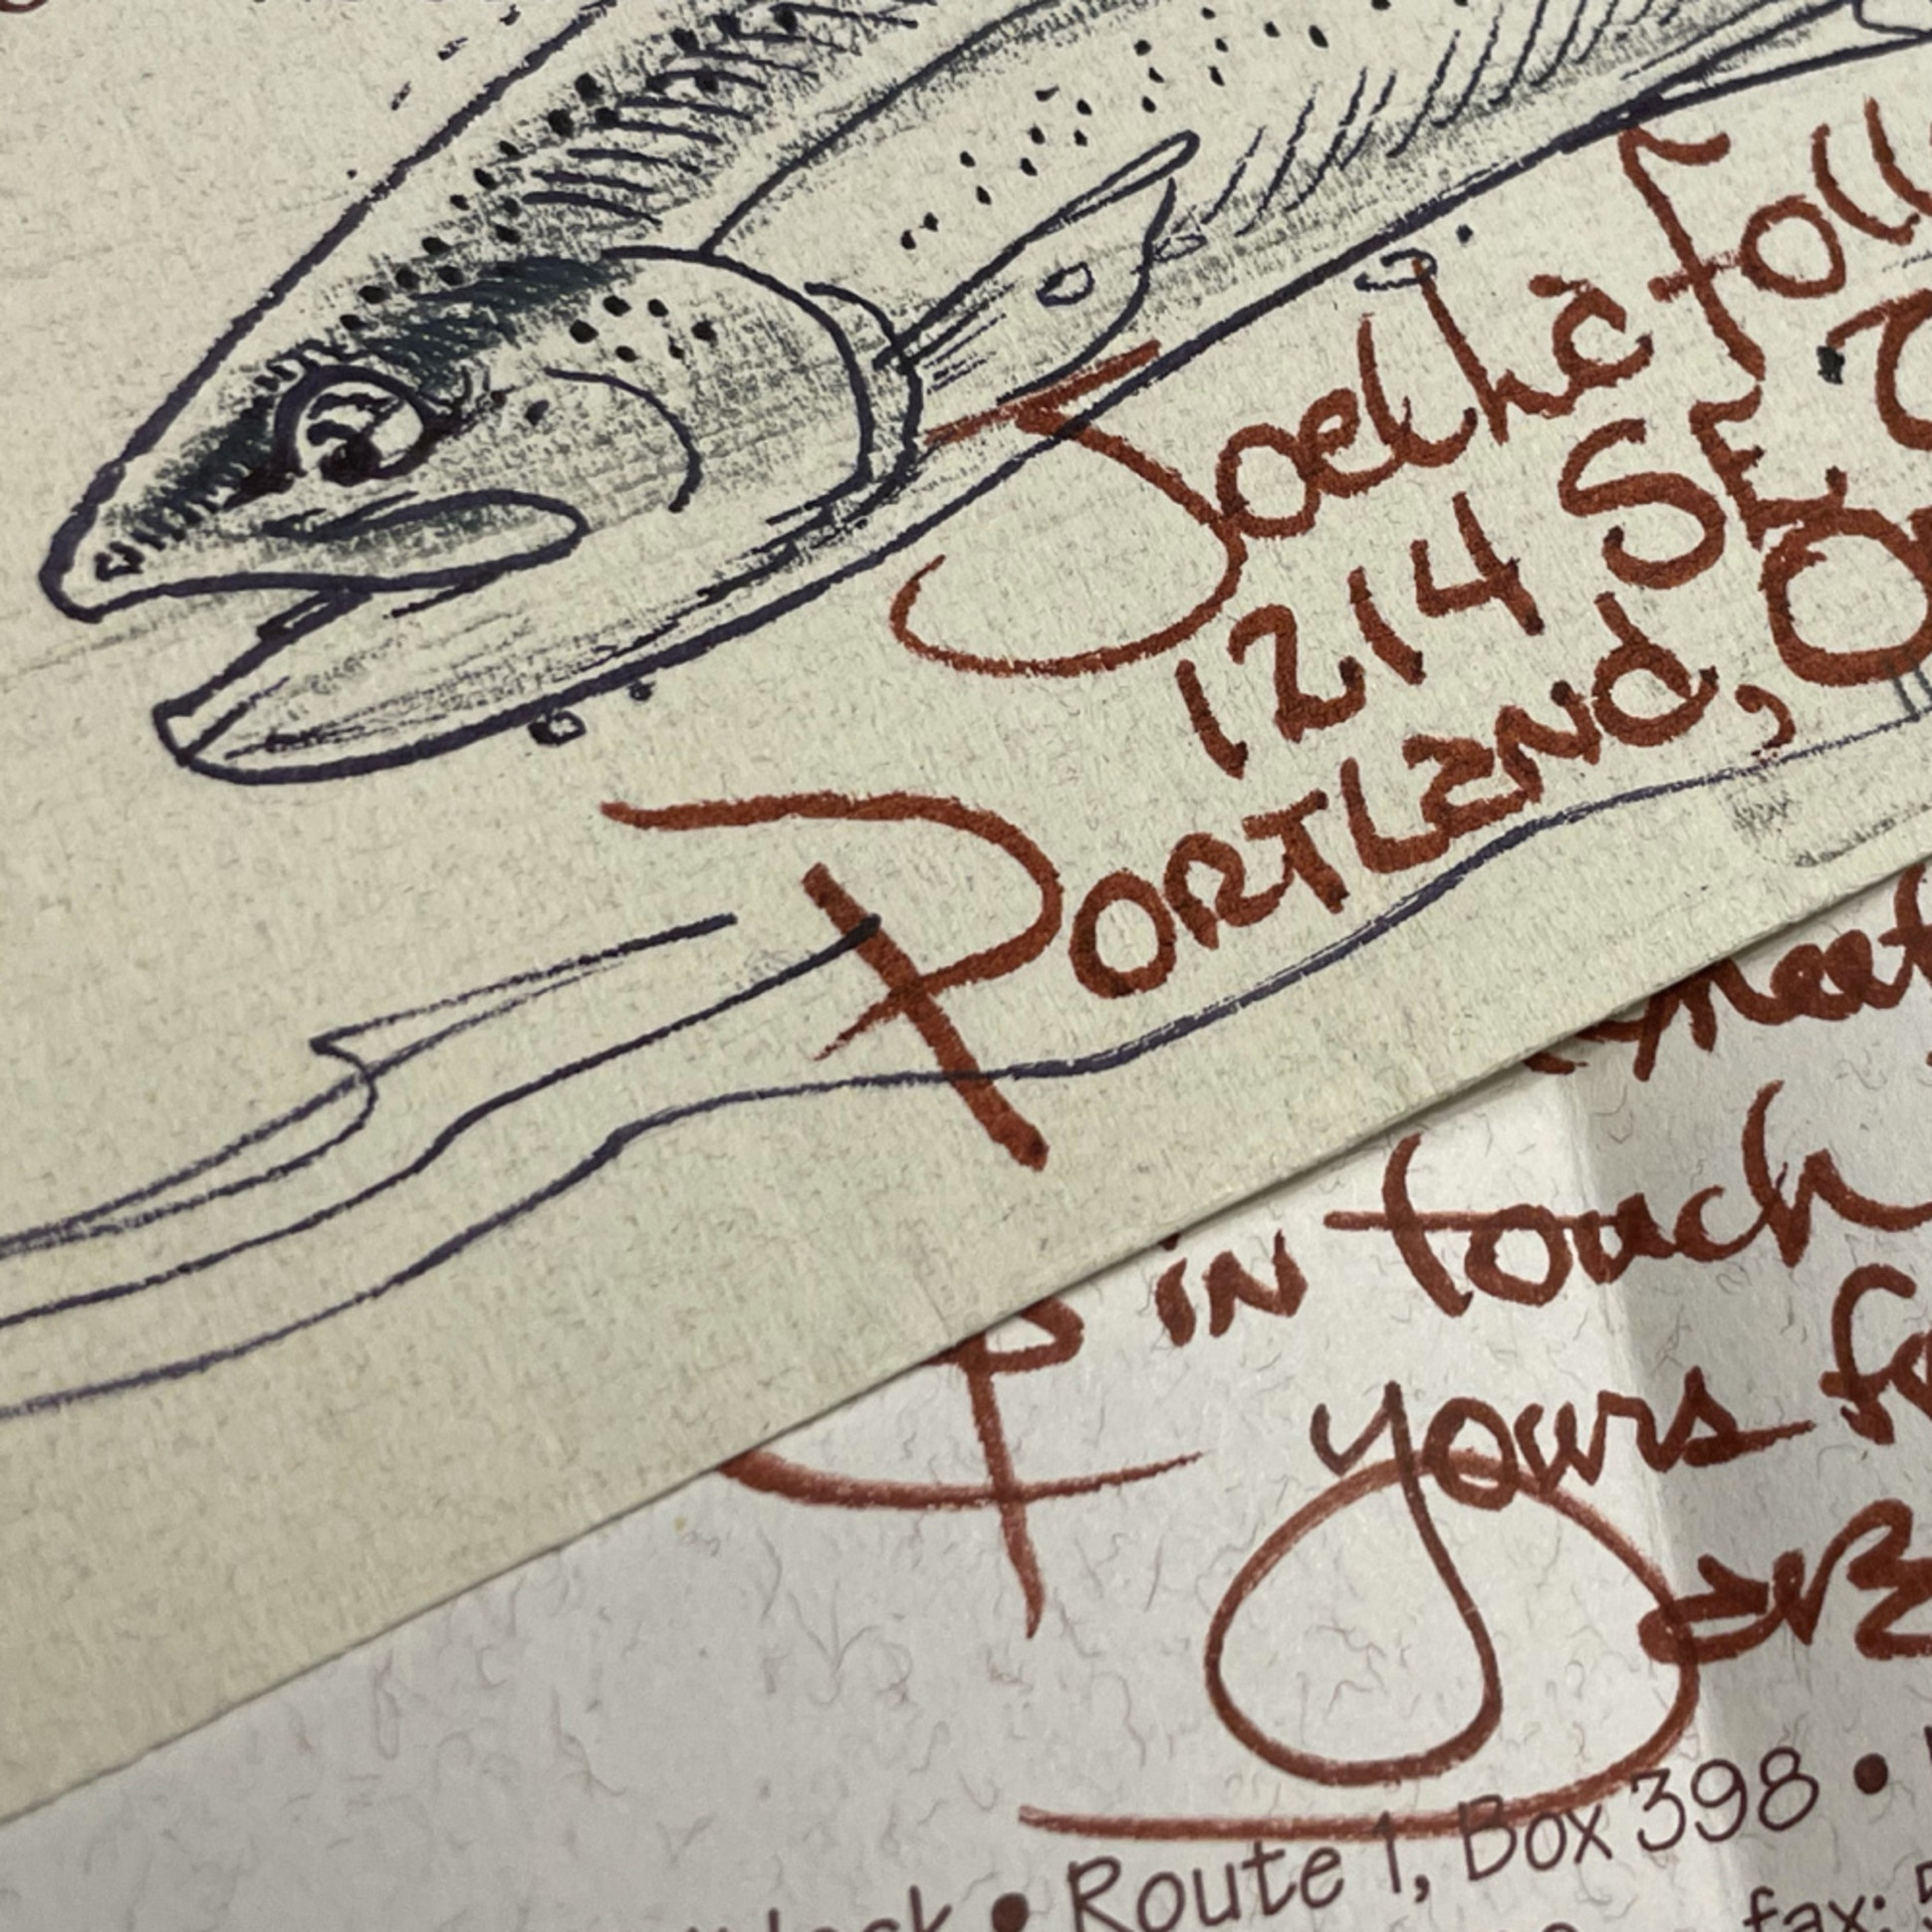 Joelle Foll
1214 SE
PORTLAND, O
in touch
yours
Route 1, Box 398 •
fax: